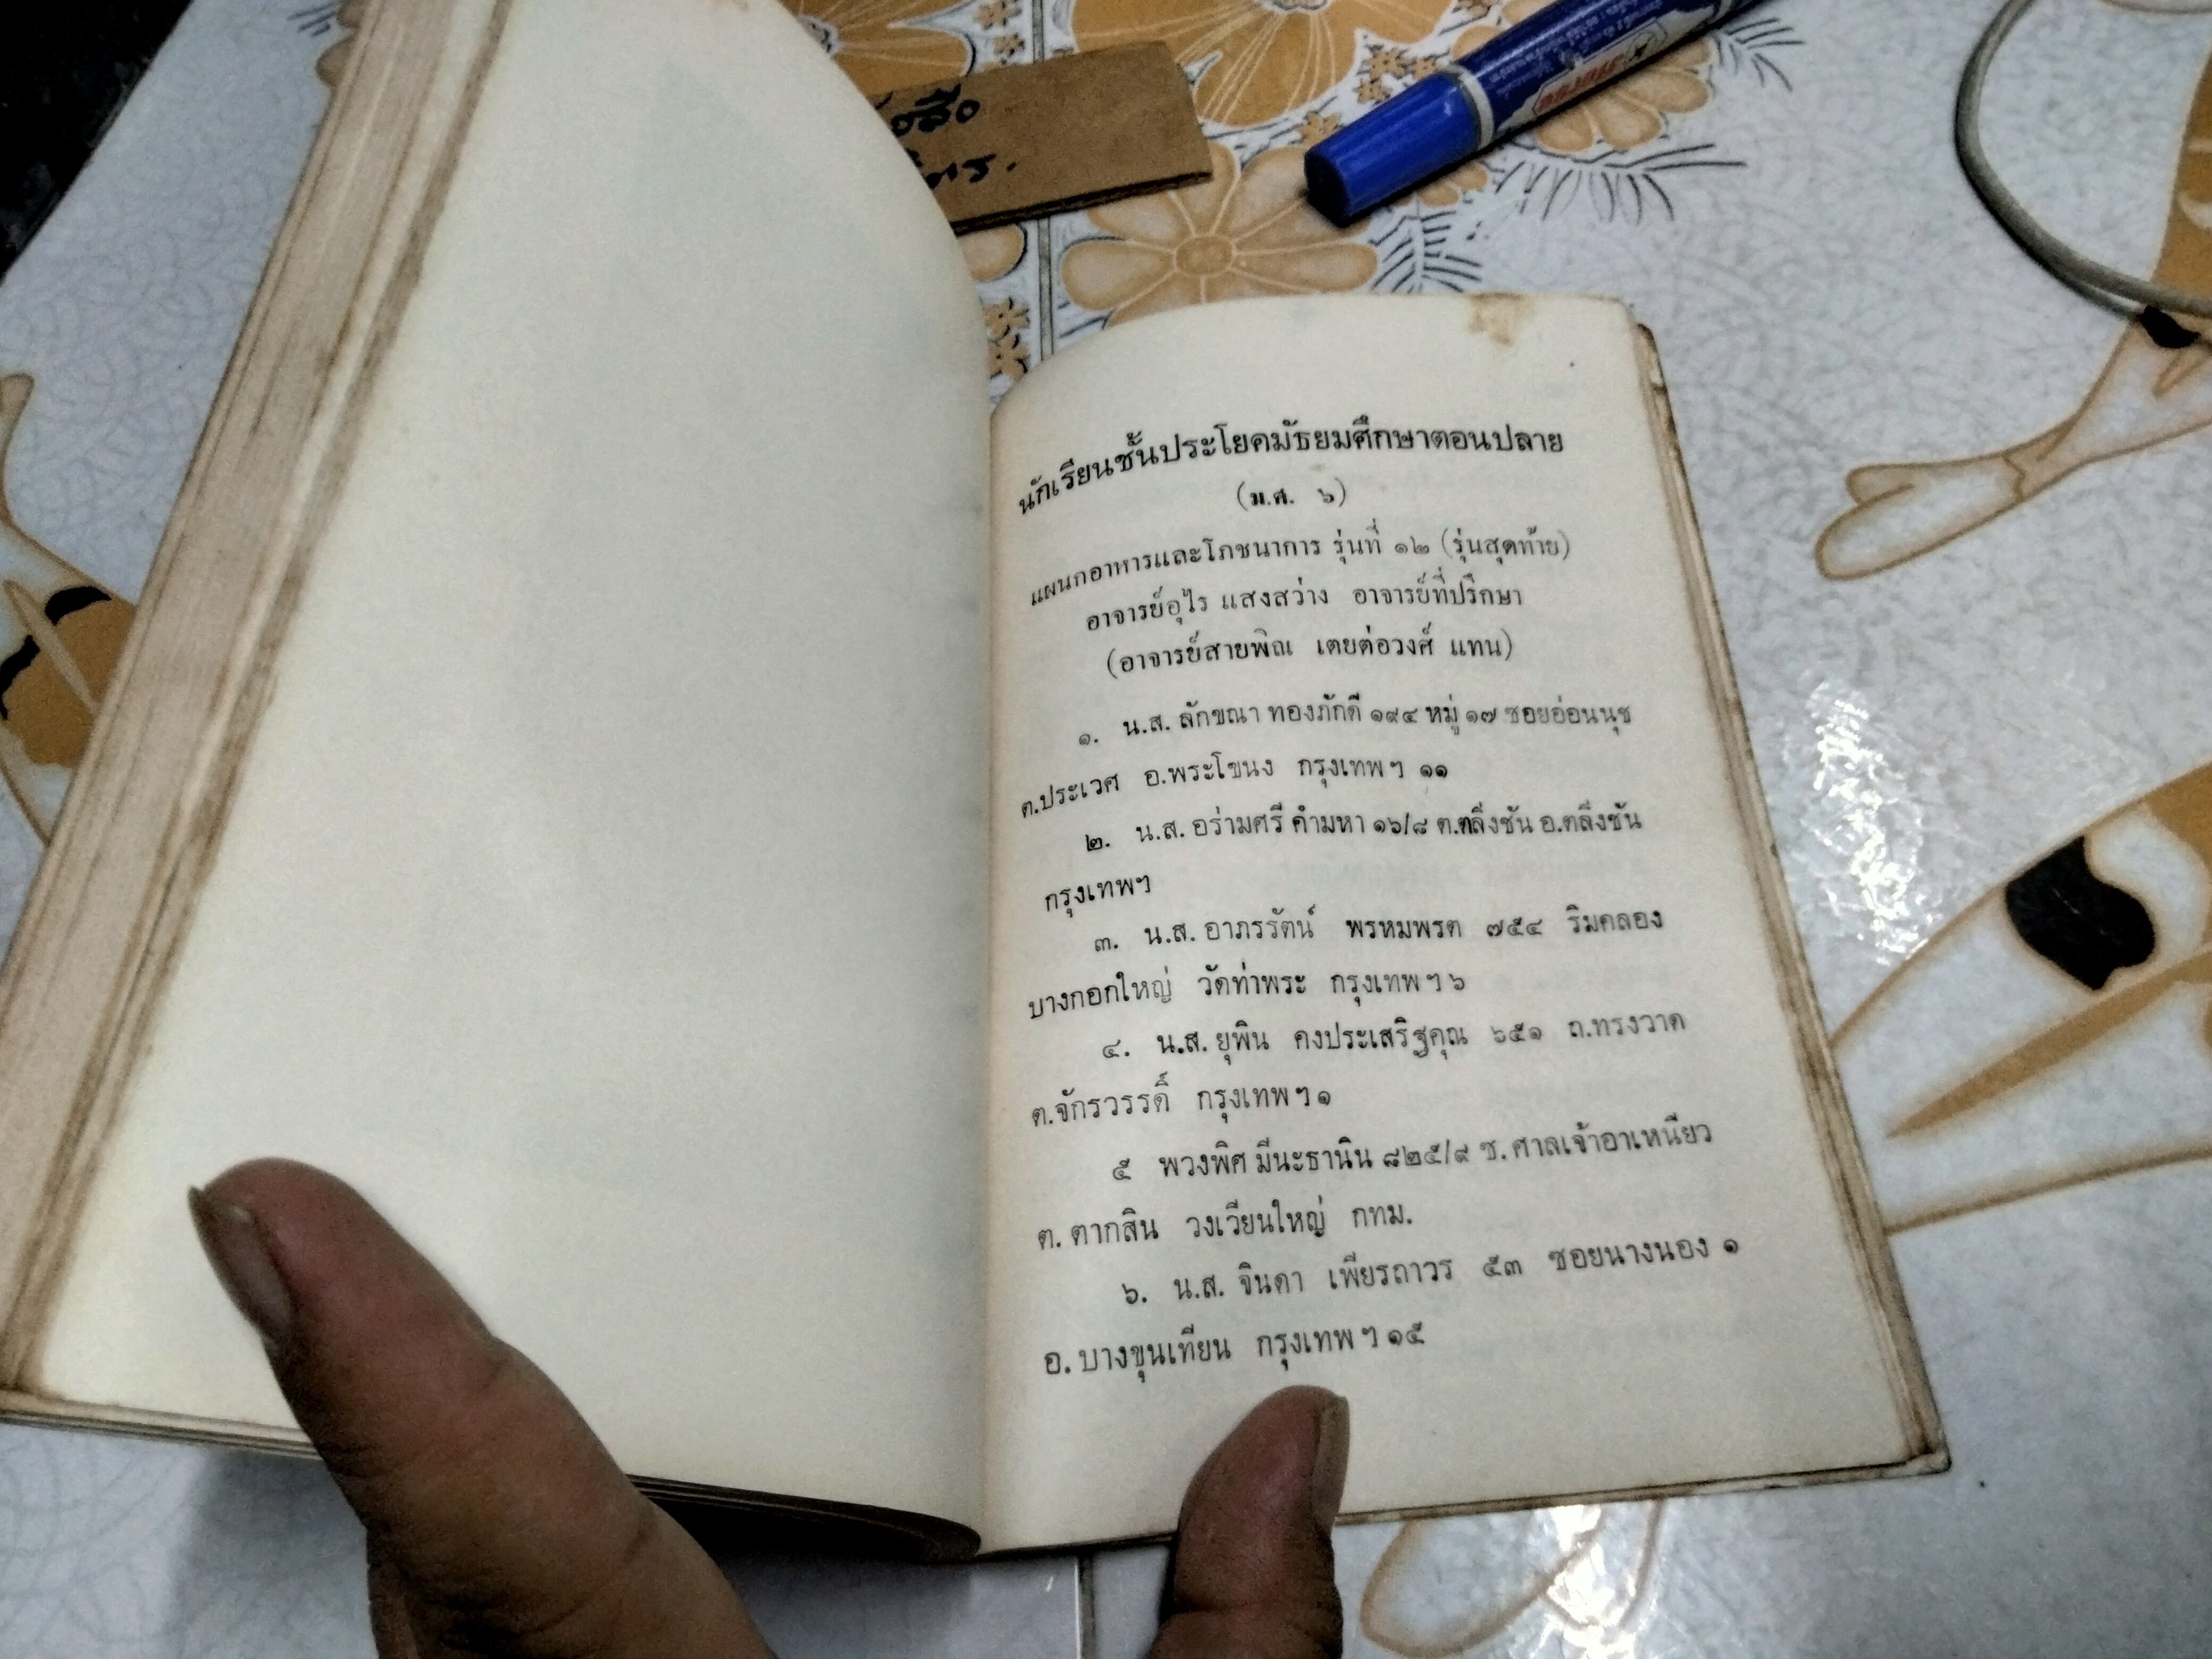 นักเรียนชั้นประโยคมัธยมศึกษาตอนปลาย
(ม.ศ. ๖)
แผนกอาหารและโภชนาการ รุ่นที่ ๑๒ (รุ่นสุดท้าย)
อาจารย์อุไร แสงสว่าง อาจารย์ที่ปรึกษา
(อาจารย์สายพิณ เตยต่อวงศ์ แทน)
๑. น.ส. ลักขณา ทองภักดี ๑๙๔ หมู่ ๑๗ ซอยอ่อนนุช
ต.ประเวศ อ.พระโขนง กรุงเทพฯ ๑๑
๒. น.ส. อร่ามศรี คำมหา ๑๖/๘ ต.ตลิ่งชัน อ.ตลิ่งชัน
กรุงเทพฯ
๓. น.ส. อาภรรัตน์ พรหมพรต ๗๕๔ ริมคลอง
บางกอกใหญ่ วัดท่าพระ กรุงเทพฯ ๖
๔. น.ส. ยุพิน คงประเสริฐคุณ ๖๕๑ ถ.ทรงวาด
ต.จักรวรรดิ์ กรุงเทพฯ ๑
๕ พวงพิศ มีนะธานิน ๘๒๕/๙ ซ. ศาลเจ้าอาเหนียว
ต. ตากสิน วงเวียนใหญ่ กทม.
๖. น.ส. จินดา เพียรถาวร ๕๓ ซอยนางนอง ๑
อ. บางขุนเทียน กรุงเทพฯ ๑๕